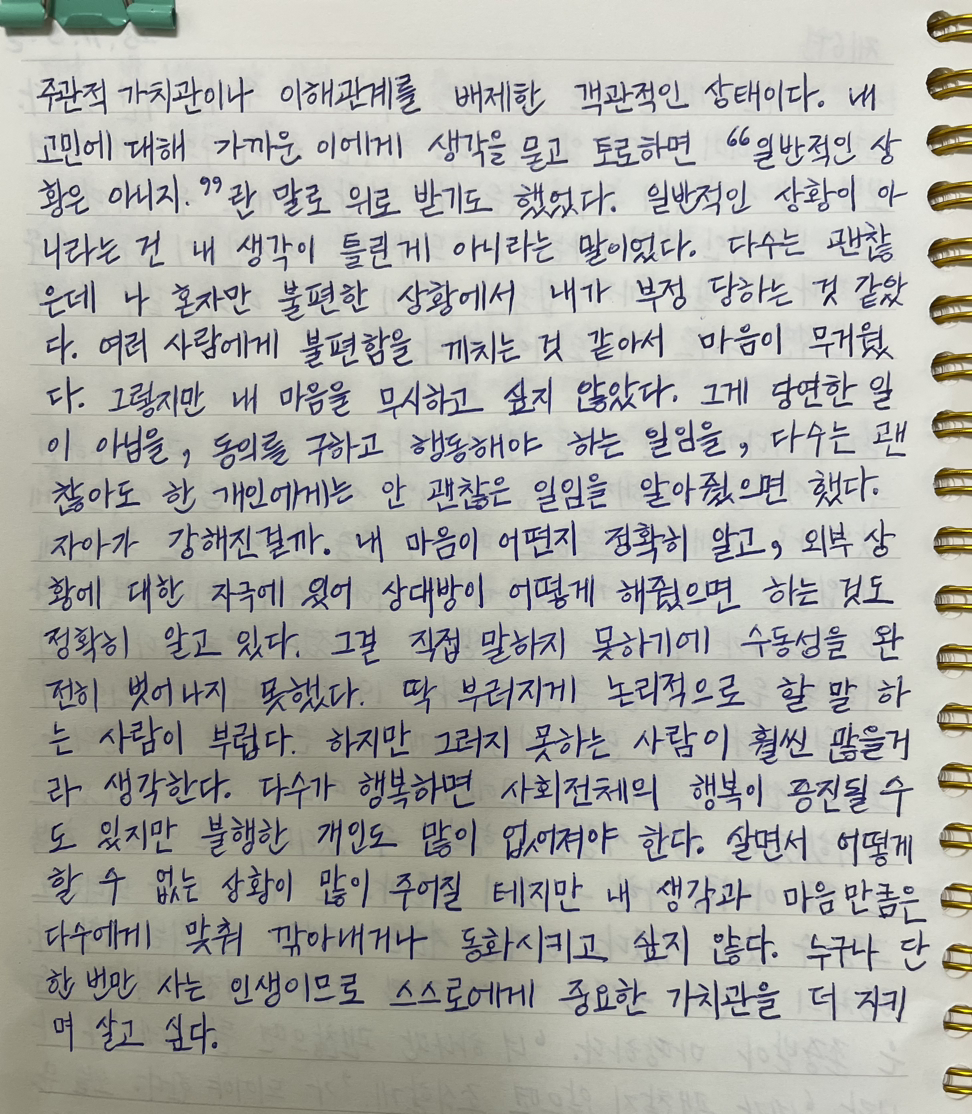 주관적 가치관이나 이해관계를 배제한 객관적인 상태이다. 내
고민에 대해 가까운 이에게 생각을 묻고 토로하면 "일반적인 상
황은 아니지."란 말로 위로 받기도 했었다. 일반적인 상황이 아
니라는 건 내 생각이 틀린게 아니라는 말이었다. 다수는 괜찮
은데 나 혼자만 불편한 상황에서 내가 부정 당하는 것 같았
다. 여러 사람에게 불편함을 끼치는 것 같아서 마음이 무거웠
다. 그렇지만 내 마음을 무시하고 싶지 않았다. 그게 당연한 일
이 아님을, 동의를 구하고 행동해야 하는 일임을, 다수는 괜
찮아도 한 개인에게는 안 괜찮은 일임을 알아줬으면 했다.
자아가 강해진걸까. 내 마음이 어떤지 정확히 알고, 외부 상
황에 대한 자극에 있어 상대방이 어떻게 해줬으면 하는 것도
정확히 알고 있다. 그걸 직접 말하지 못하기에 수동성을 완
전히 벗어나지 못했다. 딱 부러지게 논리적으로 할 말 하
는 사람이 부럽다. 하지만 그러지 못하는 사람이 훨씬 많을거
라 생각한다. 다수가 행복하면 사회전체의 행복이 증진될 수
도 있지만 불행한 개인도 많이 없어져야 한다. 살면서 어떻게
할 수 없는 상황이 많이 주어질 테지만 내 생각과 마음만큼은
다수에게 맞춰 깎아내거나 동화시키고 싶지 않다. 누구나 단
한 번만 사는 인생이므로 스스로에게 중요한 가치관을 더 지키
며 살고 싶다.